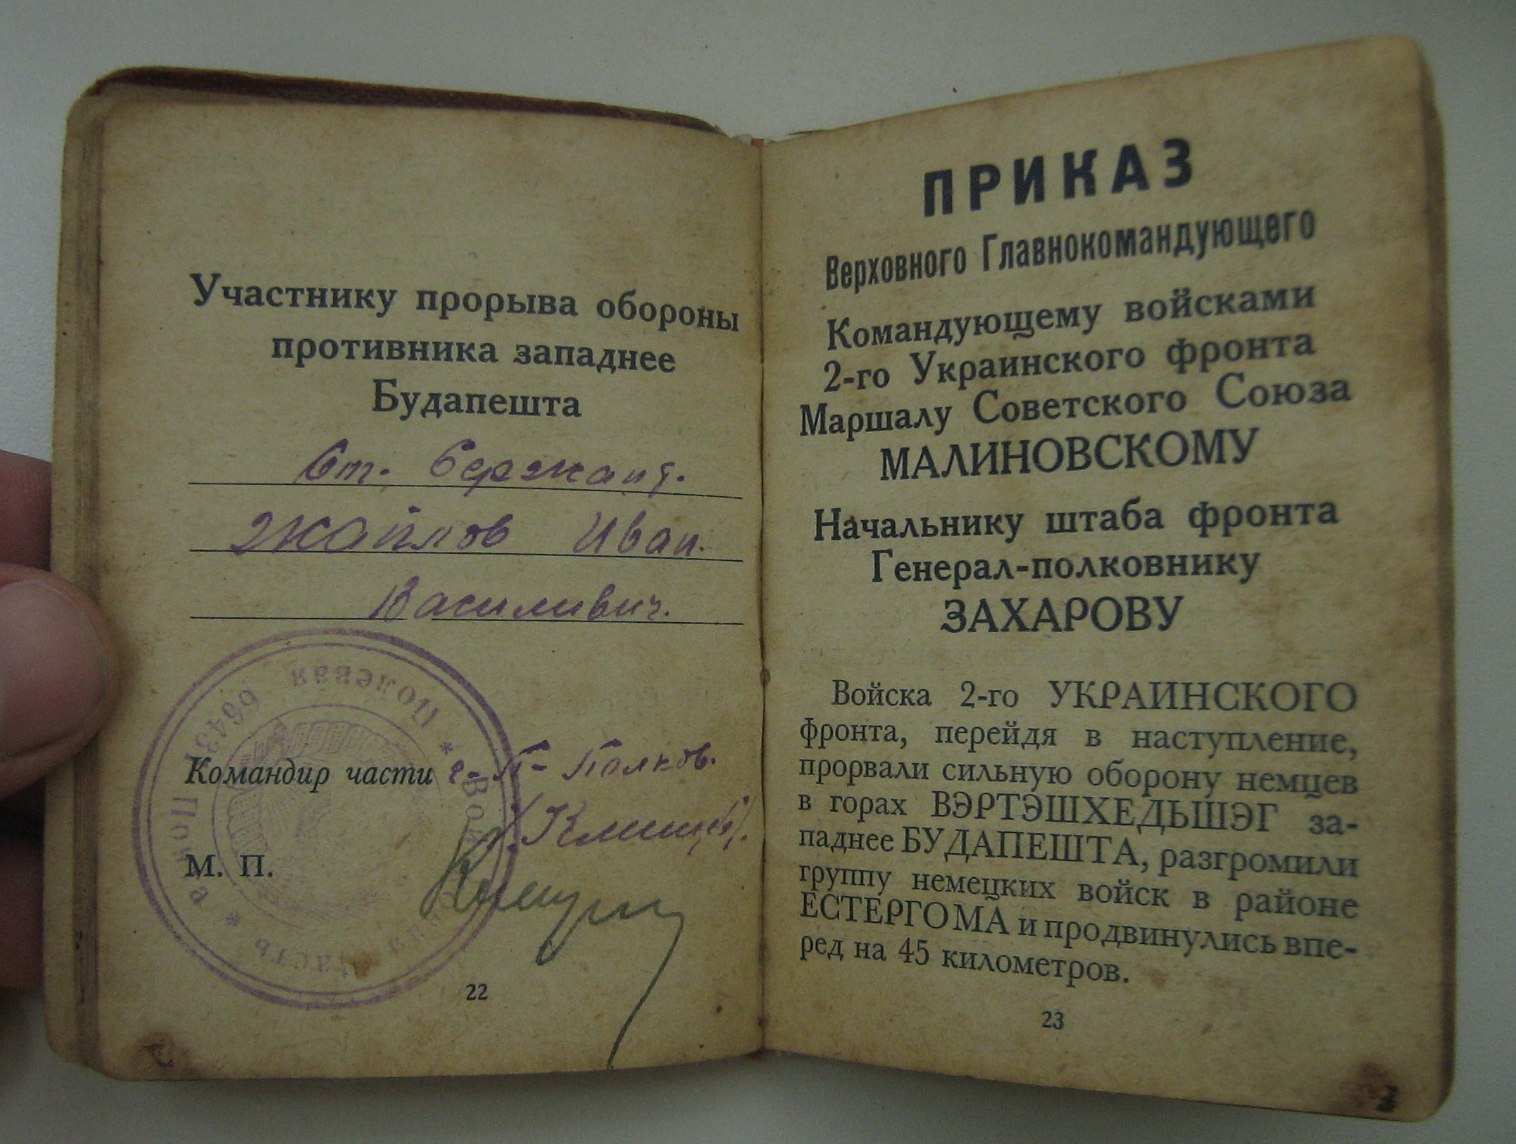 Участнику прорыва обороны
противника западнее
Будапешта
Ст. Сержант.
Иван.
Василивич.
Командир части г-п- Полков.
М. П.
Полевая Почта * Войсковая часть *
22
ПРИКАЗ
Верховного Главнокомандующего
Командующему войсками
2-го Украинского фронта
Маршалу Советского Союза
МАЛИНОВСКОМУ
Начальнику штаба фронта
Генерал-полковнику
ЗАХАРОВУ
Войска 2-го УКРАИНСКОГО
фронта, перейдя в наступление,
прорвали сильную оборону немцев
в горах ВЭРТЭШХЕДЬШЭГ за-
паднее БУДАПЕШТА, разгромили
группу немецких войск в районе
ЕСТЕРГОМА и продвинулись впе-
ред на 45 километров.
23